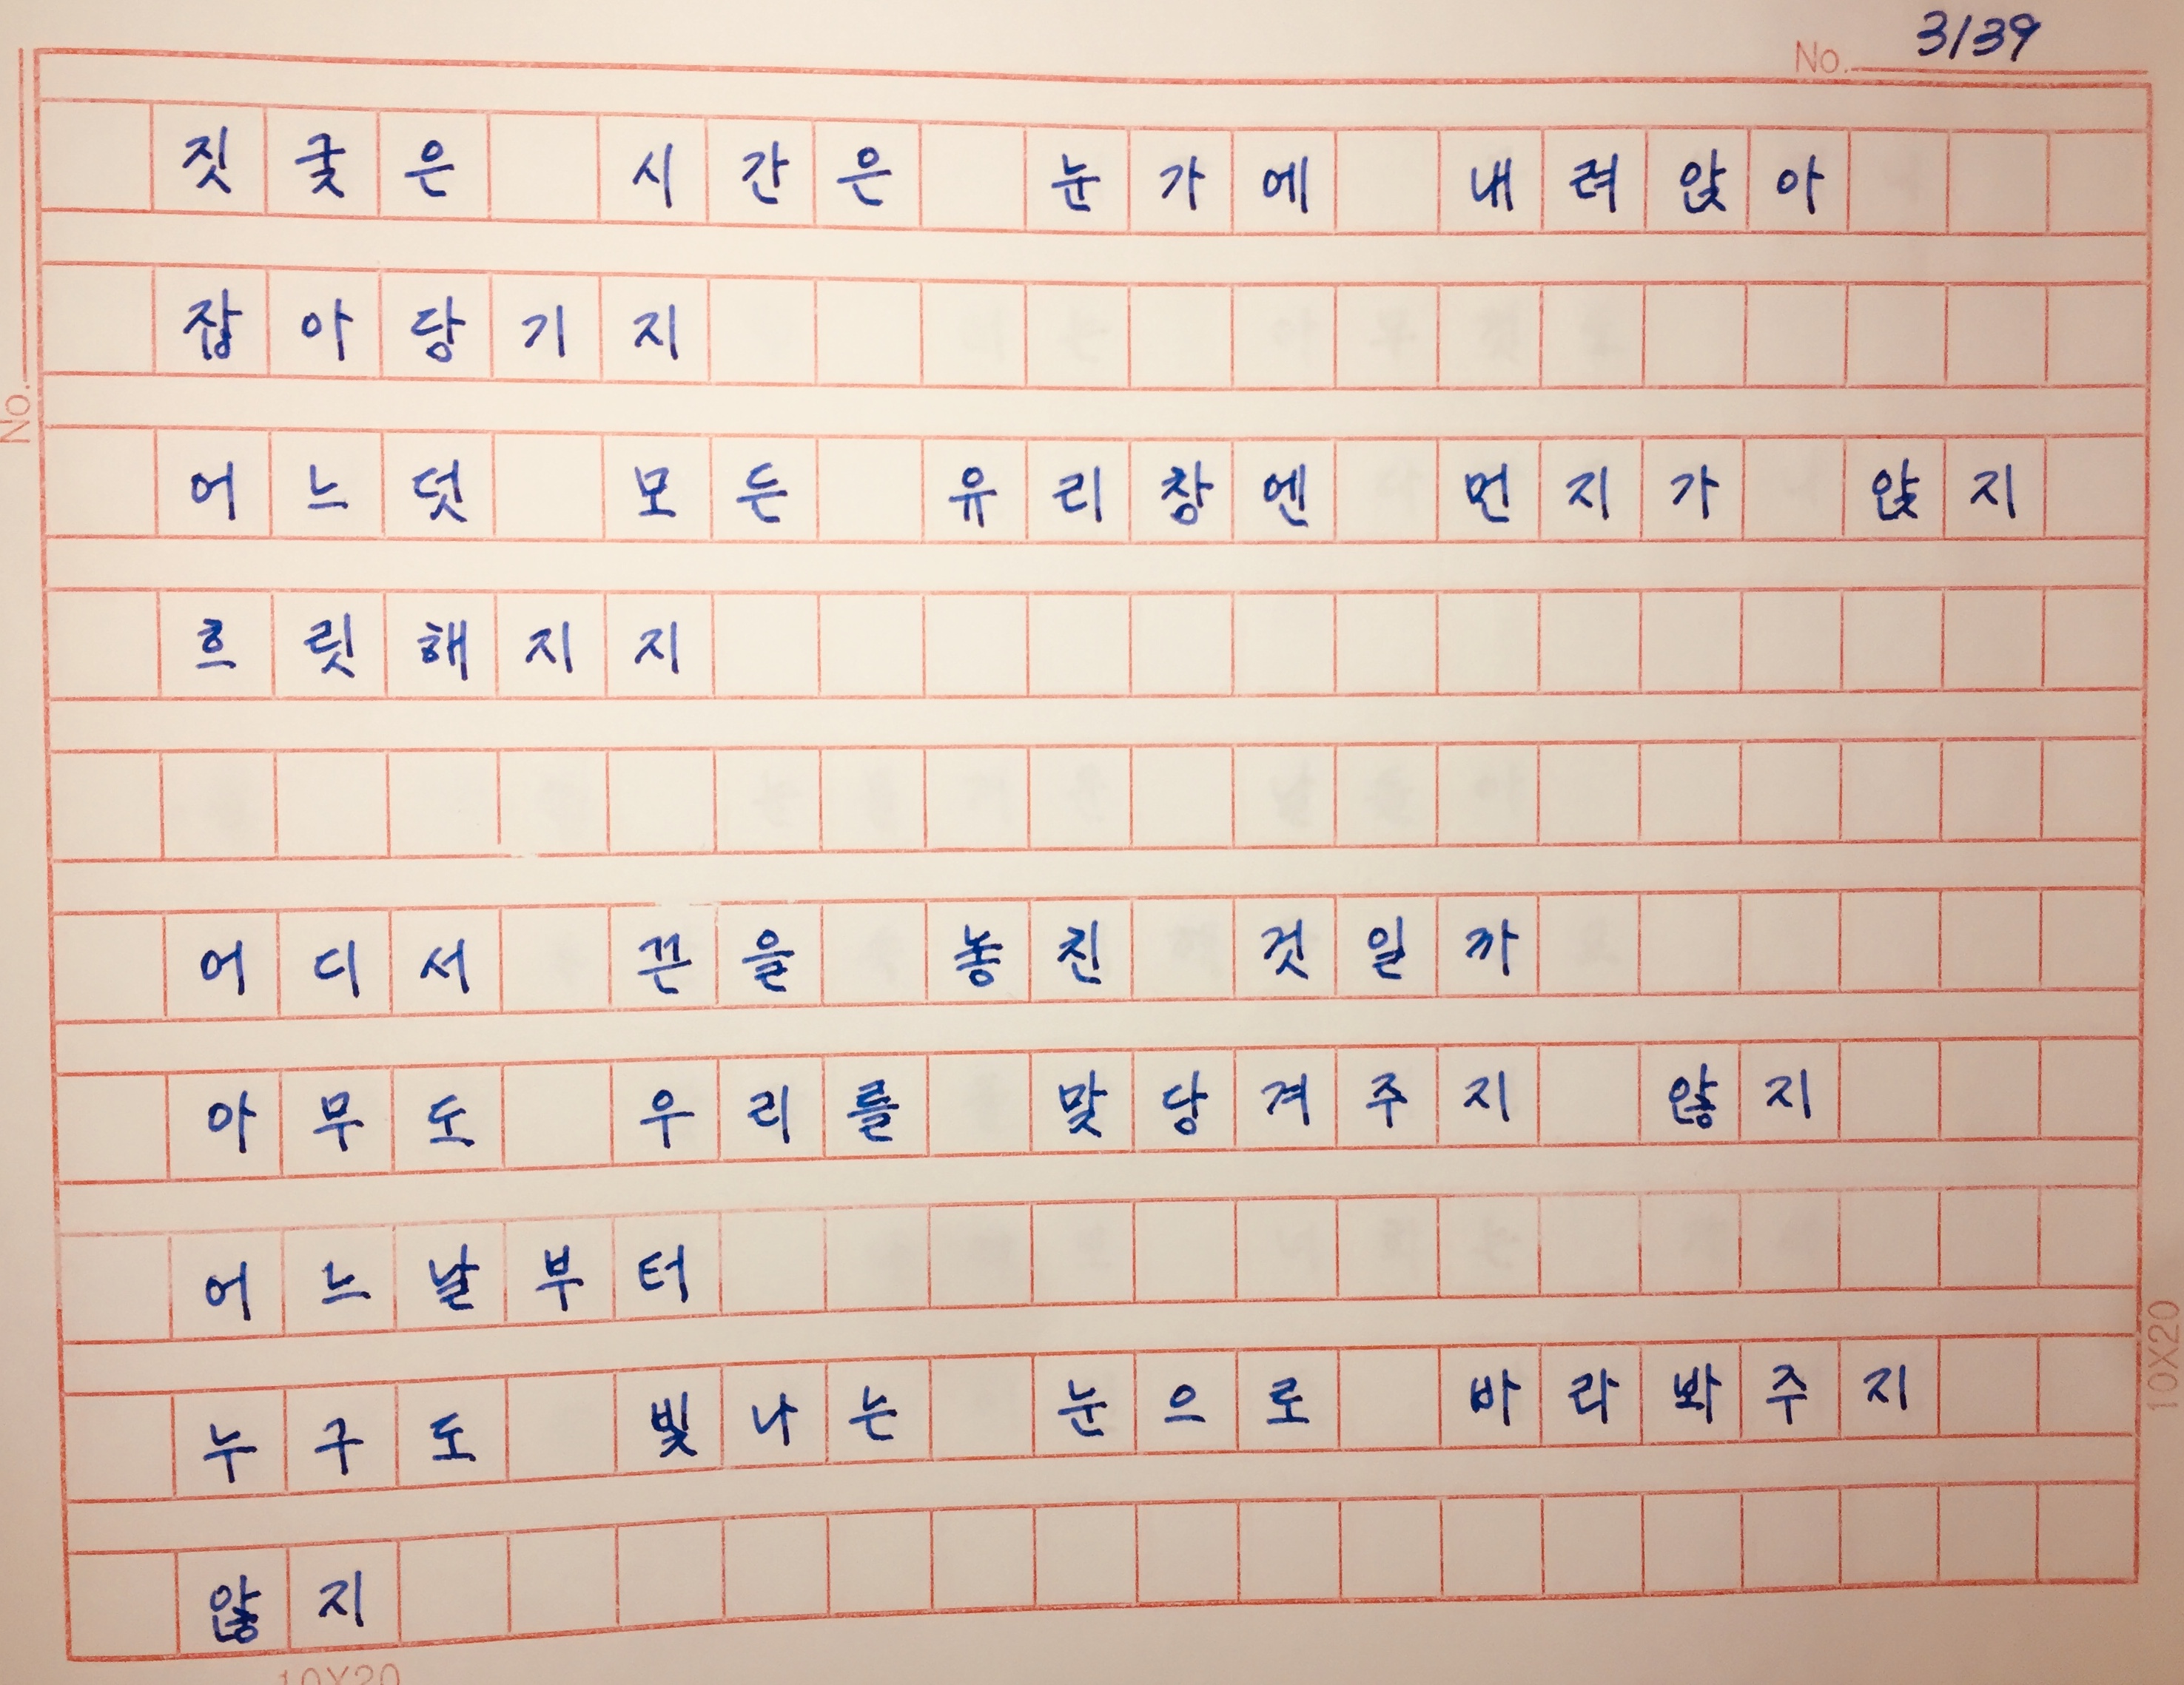 No. 3/39
짓궂은 시간은 눈가에 내려앉아
잡아당기지
어느덧 모든 유리창엔 먼지가 앉지
흐릿해지지
어디서 끈을 놓친 것일까
아무도 우리를 맞당겨주지 않지
어느날부터
누구도 빛나는 눈으로 바라봐주지
않지
No.
10X20
10X20